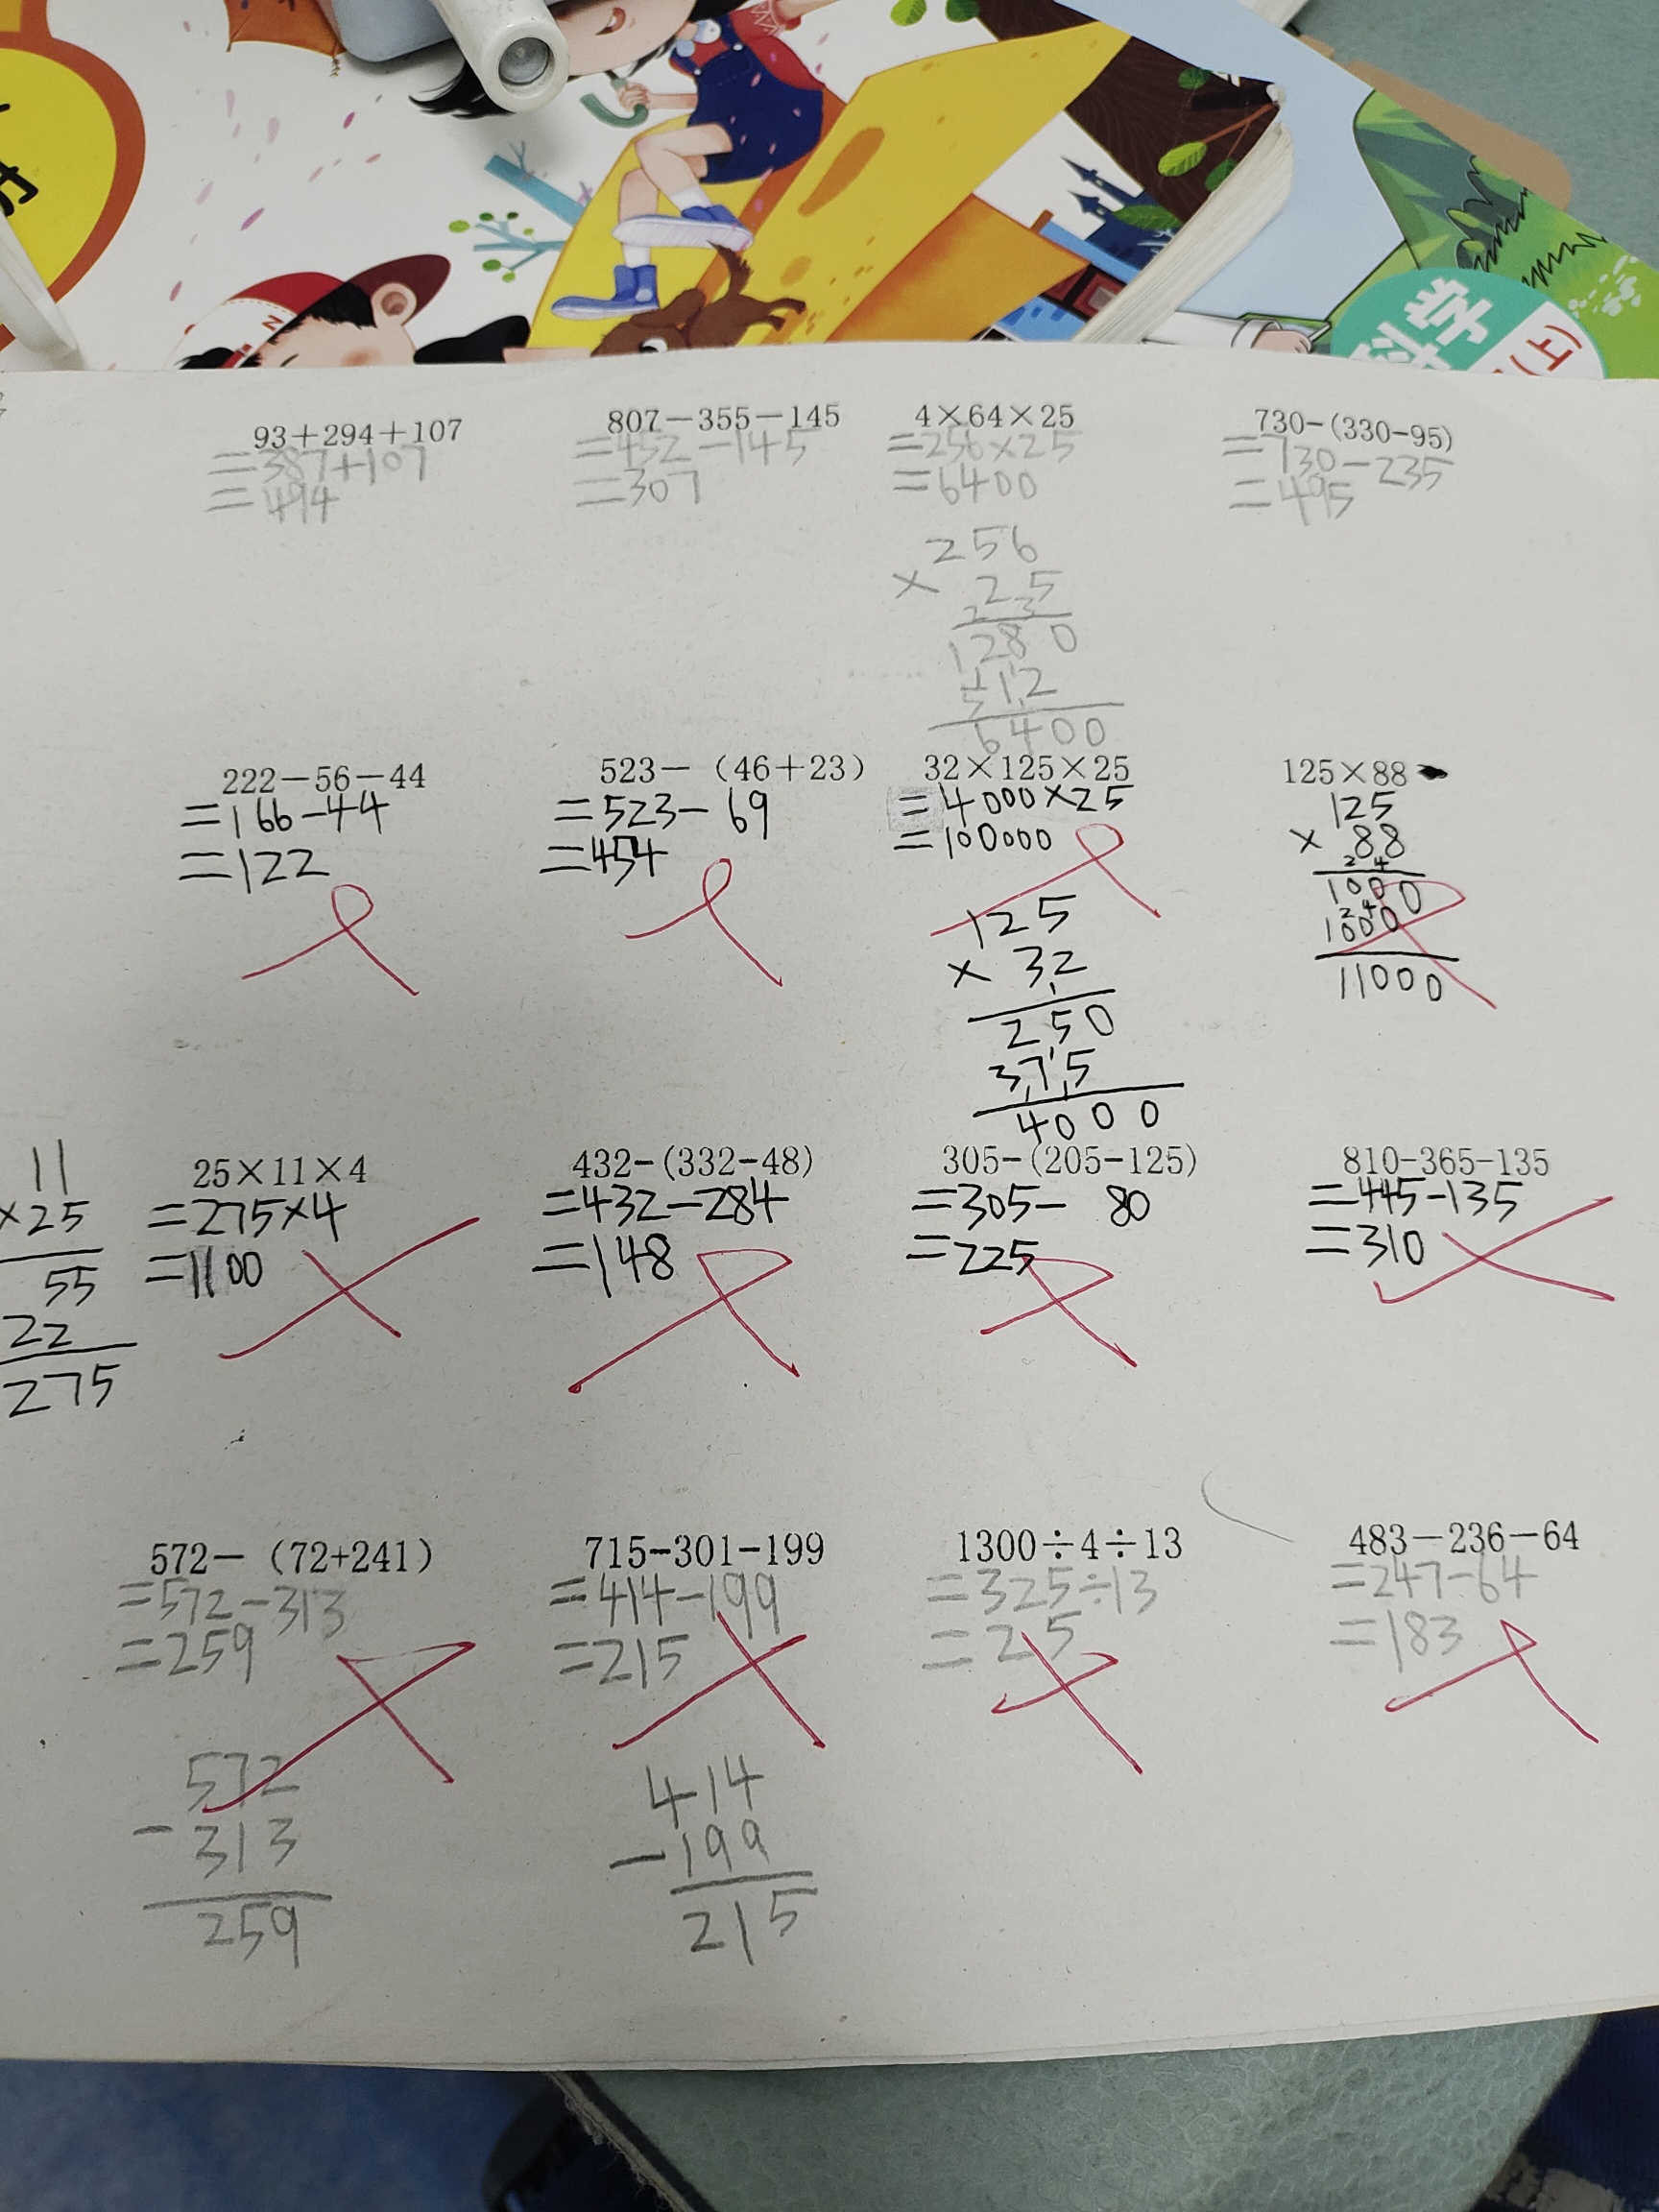 科学
(上)
93+294+107
=387+107
=494
807-355-145
=452-145
=307
4×64×25
=256×25
=6400
256
× 25
2 3
1280
512
6400
730-(330-95)
=730-235
=495
222-56-44
=166-44
=122
523-（46+23）
=523-69
=454
32×125×25
=4000×25
=100000
125
× 32
250
375
4000
125×88
125
× 88
2 4
1000
2 4
1000
11000
11
×25
55
22
275
25×11×4
=275×4
=1100
432-(332-48)
=432-284
=148
305-(205-125)
=305- 80
=225
810-365-135
=445-135
=310
572-（72+241）
=572-313
=259
572
-313
259
715-301-199
=414-199
=215
414
-199
215
1300÷4÷13
=325÷13
=25
483-236-64
=247-64
=183